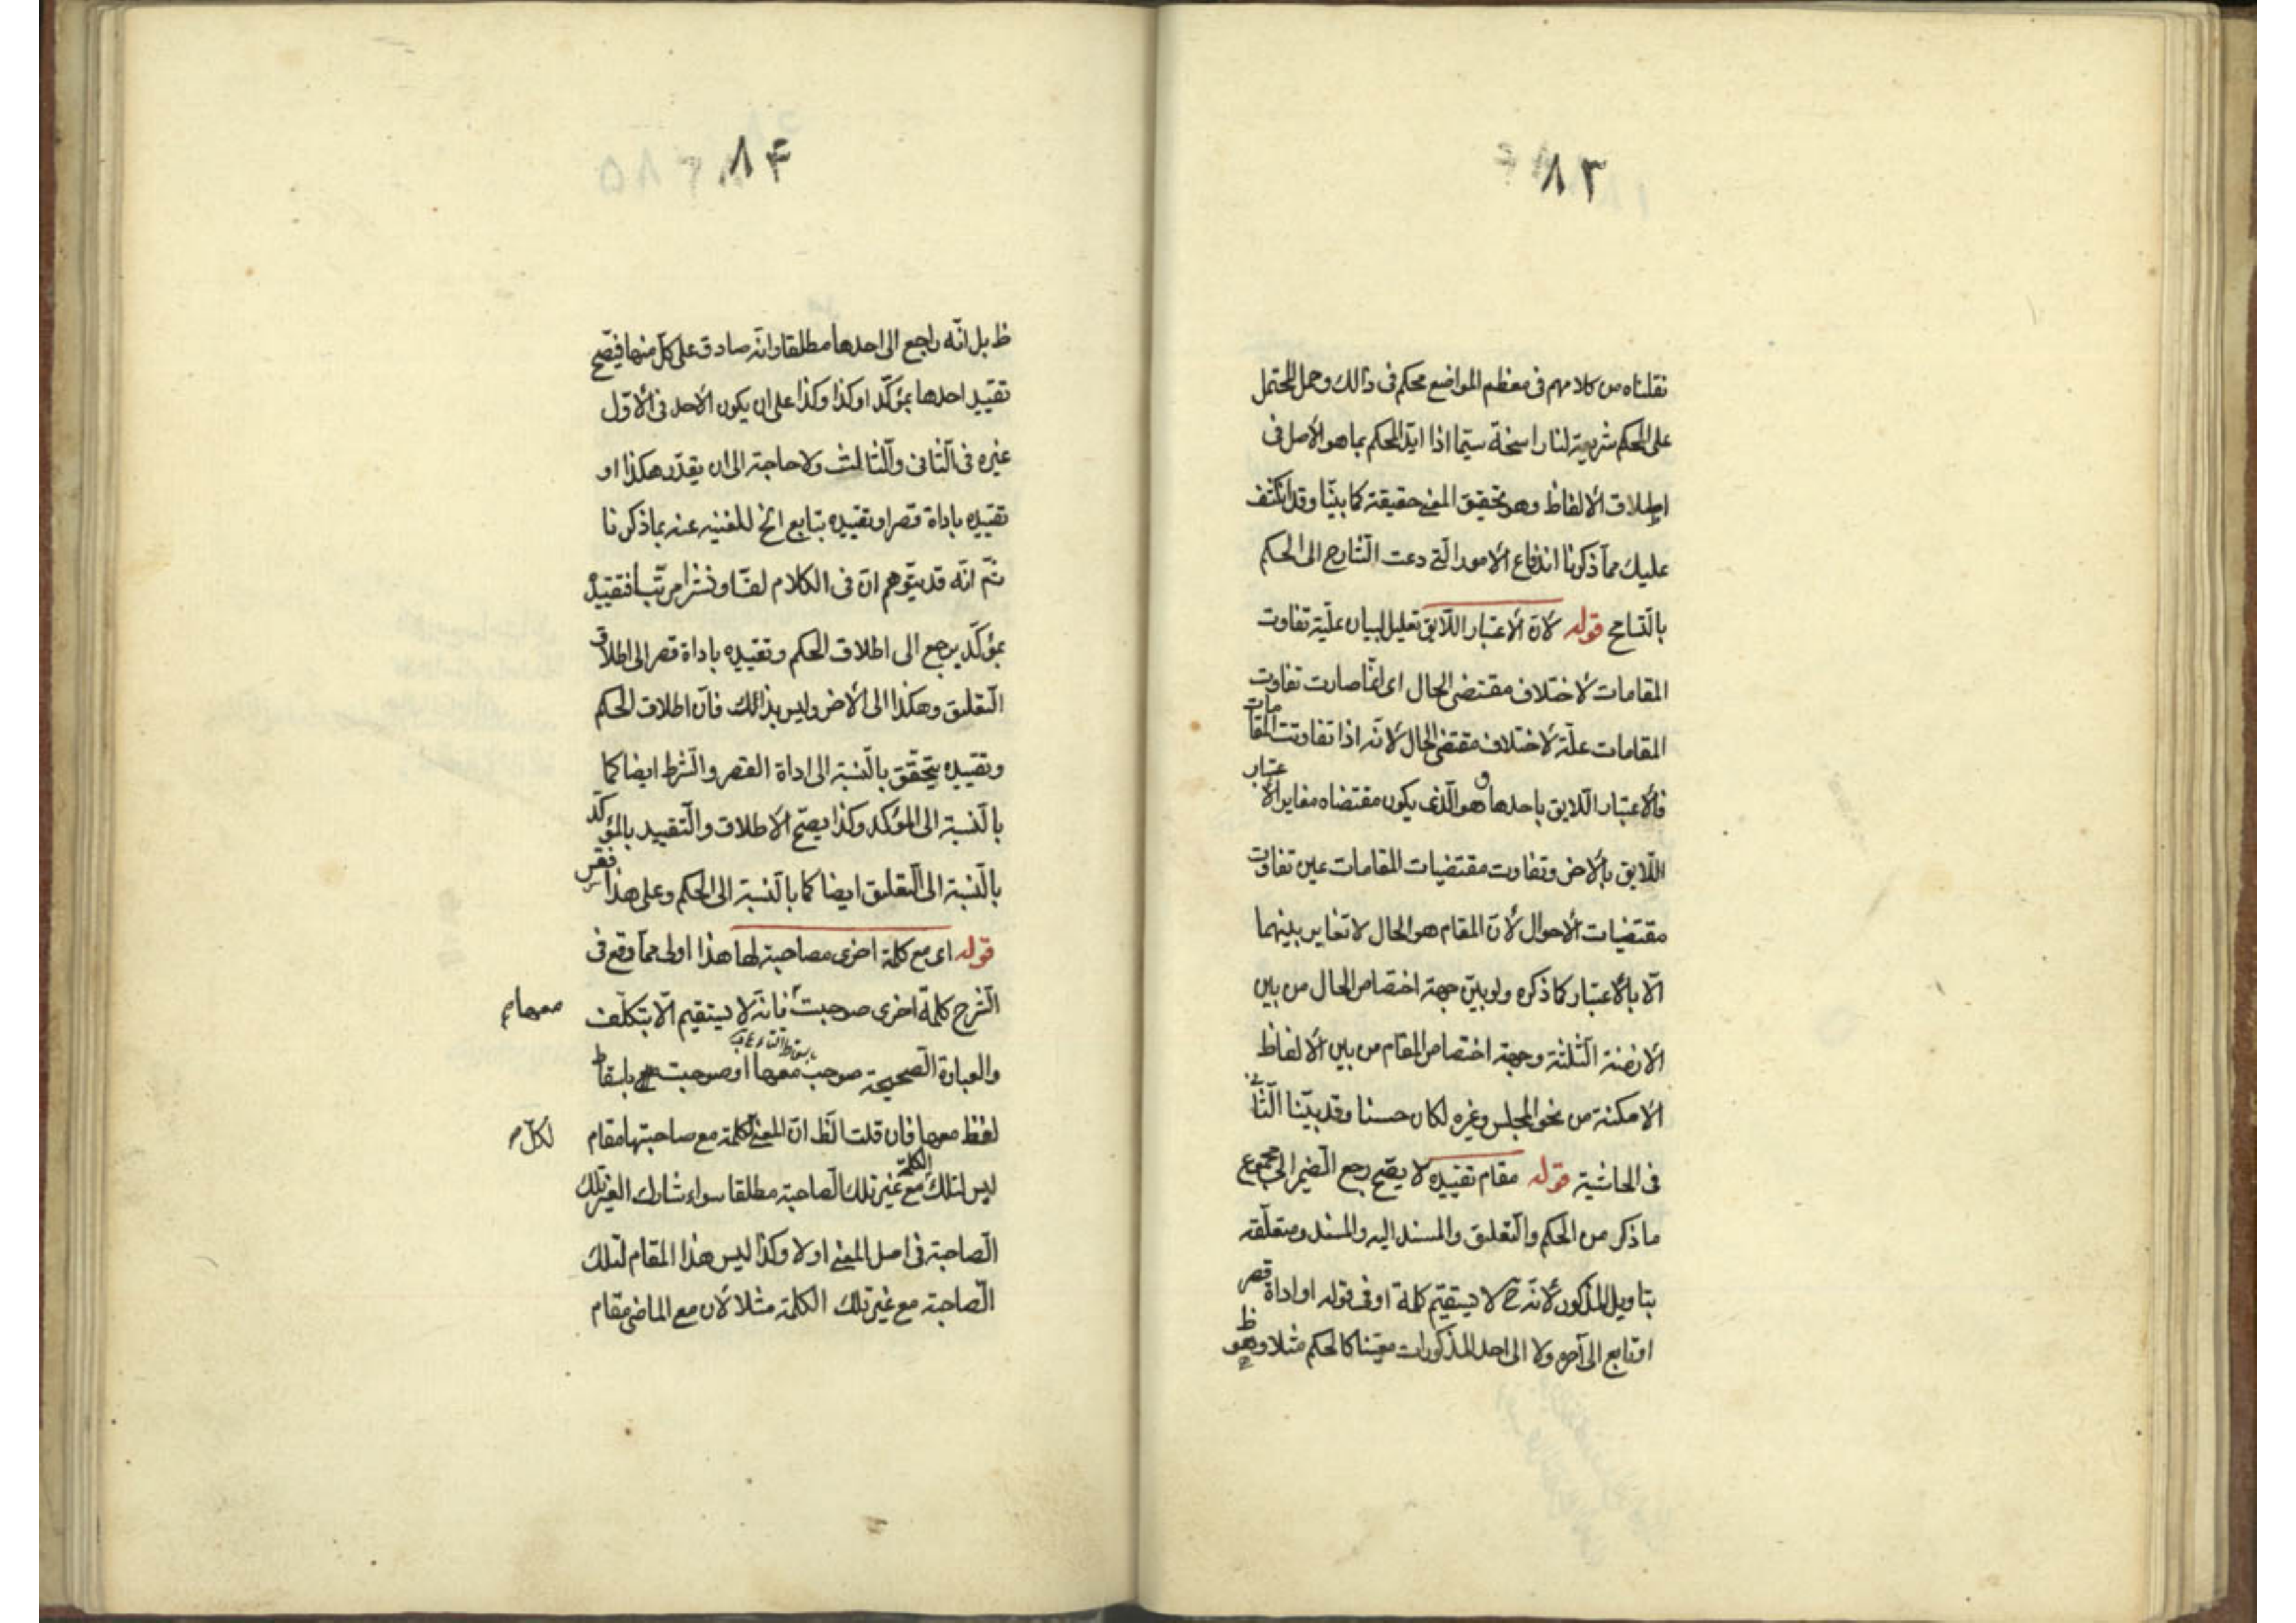 ٨٣
نقلناه من كلامهم فى معظم المواضع محكم فى ذالك وحمل المحتمل
على المحكم شريعة لنا راسخة سيّما اذا ايّد المحكم بما هو الأصل فى
اطلاق الألفاظ وهو تحقيق المعنى حقيقة كما بينّا وقد انكشف
عليك ممّا ذكرنا اندفاع الأمور الّتى دعت الشّارح الى الحكم
بالتّسامح قوله لأنّ الأعتبار اللّايق تعليل لبيان علّية تفاوت
المقامات لأختلاف مقتضى الحال اى انّما صارت تفاوت
المقامات علّة لأختلاف مقتضى الحال لأنّه اذا تفاوتت المقامات
فالأعتبار اللّايق باحدها وهو الّذى يكون مقتضاه مغاير الأعتبار
اللّايق بالأخر وتفاوت مقتضيات المقامات عين تفاوت
مقتضيات الأحوال لأنّ المقام هو الحال لا تغاير بينهما
الّا بالأعتبار كما ذكره ولو بيّن جهة اختصاص الحال من بين
الأزمنة الثّلثة وجهة اختصاص المقام من بين الألفاظ
الأمكنة من نحو المجلس وغيره لكان حسنا وقد بيّنا الثّانى
فى الحاشية قوله مقام تقييده لا يصّح رجع الضّمير الى مجموع
ما ذكر من الحكم والتّعليق والمسند اليه والمسند ومتعلّقه
بتاويل المذكور لأنّه ح لا يستقيم كلمة او فى قوله او اداة قصر
او تابع الى آخره ولا الى احد المذكورات معيّنا كالحكم مثلا وهو
٨۴
ظ بل انّه راجع الى احدها مطلقا وانّه صادق على كلّ منها فيصّح
تقييد احدها بمؤكّد او كذا وكذا على ان يكون الأحد فى الأوّل
غيره فى الثّانى والثّالث ولا حاجة الى ان يقدّر هكذا او
تقييده باداة قصر او تقييده بتابع الخ للغنية عنه بما ذكرنا
ثمّ انّه قد يتوّهم انّ فى الكلام لفّا ونشرا مرتّبا فتقييده
بمؤكّد يرجع الى اطلاق الحكم وتقييده باداة قصر الى اطلاق
التّعليق وهكذا الى الأخر وليس بذالك فانّ اطلاق الحكم
وتقييده يتحقّق بالنّسبة الى اداة القصر والشّرط ايضا كما
بالنّسبة الى المؤكد وكذا يصّح الأطلاق والتّقييد بالمؤكّد
بالنّسبة الى التّعليق ايضا كما بالنّسبة الى الحكم وعلى هذا فقس
قوله اى مع كلمة اخرى مصاحبة لها هذا اولى ممّا وقع فى
الشّرح كلمة اخرى صوحبت فانّه لا يستقيم الّا بتكلّف
معها
والعبارة الصّحيحة صوحب معها او صوحبت باسقاط
لفظ معها فان قلت الظّ انّ المعنى لكلمة مع صاحبتها مقام
لكلّ
ليس لتلك الكلمة مع غير تلك الصّاحبة مطلقا سواء شارك الغير تلك
الصّاحبة فى اصل المعنى او لا وكذا ليس هذا المقام لتلك
الصّاحبة مع غير تلك الكلمة مثلا لأن مع الماضى مقام